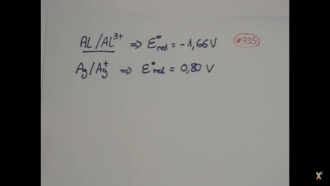 Al/Al³⁺ ⇒ E°red = -1,66V #735
Ag/Ag⁺ ⇒ E°red = 0,80 V